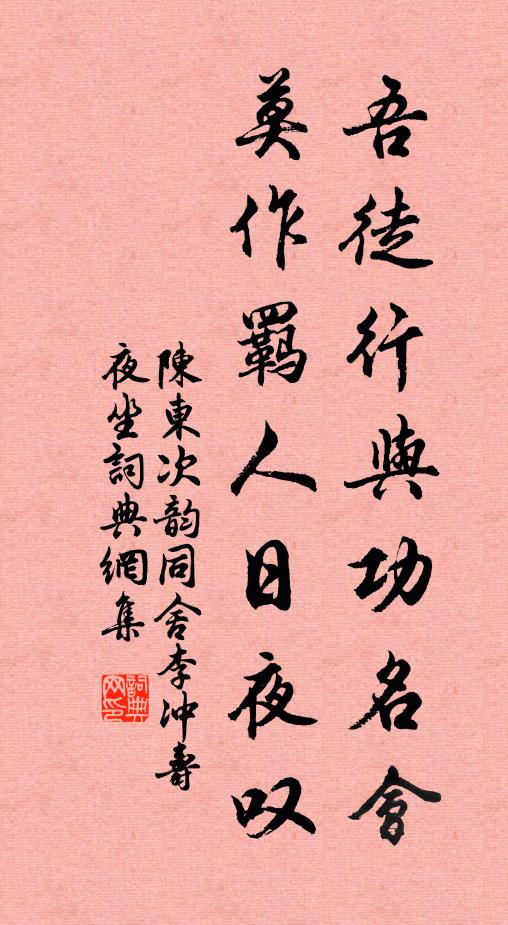 吾徒行與功名會
莫作羈人日夜叹
陳東次韵同舍李沖壽
夜坐詞典網集
詞典網印